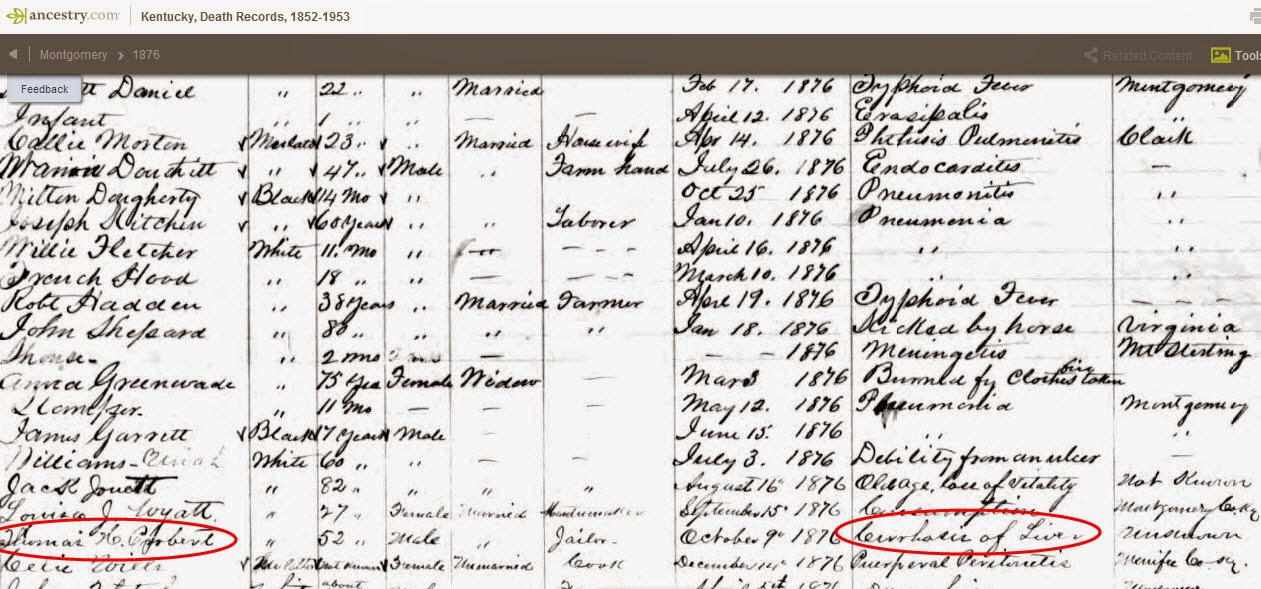 ancestry.com Kentucky, Death Records, 1852-1953
Montgomery › 1876 Related Content Tools
Feedback
Daniel " 22 " " Married Feb 17. 1876 Typhoid Fever Montgomery
Infant " 1 " " — — April 12. 1876 Erasipalis "
Callie Morten Mulato 23 " " Married Housewife Apr 14. 1876 Phthisis Pulmonitis Clark
Douthitt " 47 " Male " Farm hand July 26. 1876 Endocarditis —
Milton Dougherty Black 14 Mo " Oct 25 1876 Pneumonitis "
Joseph Kitchen " 60 Years " " Laborer Jan 10. 1876 Pneumonia "
Willie Fletcher White 11. Mo " — - - - April 16. 1876 " "
French Hood " 18 " " — — - - March 10. 1876 " "
Robt Hadden " 38 Years " Married Farmer April 19. 1876 Typhoid Fever - - - -
John Shepard " 80 " " " " Jan 18. 1876 Kicked by horse Virginia
Shouse - " 2 mos — — — 1876 Meningetis Mt Sterling
Anna Greenwade " 75 Yrs Female Widow — Mar 3 1876 Burned by Clothes fire taken
" 11 Mo — — — May 12. 1876 Pneumonia Montgomery
James Garrett Black 17 Years Male — — June 15. 1876 " "
Williams - White 60 " " — — July 3. 1876 Debility from an ulcer —
Jack Jouett " 82 " " " " August 16" 1876 Old age, loss of Vitality Not Known
Louisa J. Wyatt. " 27 " Female Married Mantumaker September 15" 1876 Consumption Montgomery Co. Ky
Thomas H. Corbett " 52 " Male " Jailor - October 9" 1876 Cirrhosis of Liver Unknown
Wills Female Unmarried Cook December 14" 1876 Puerperal Peritonitis Menifee Co. Ky.
about